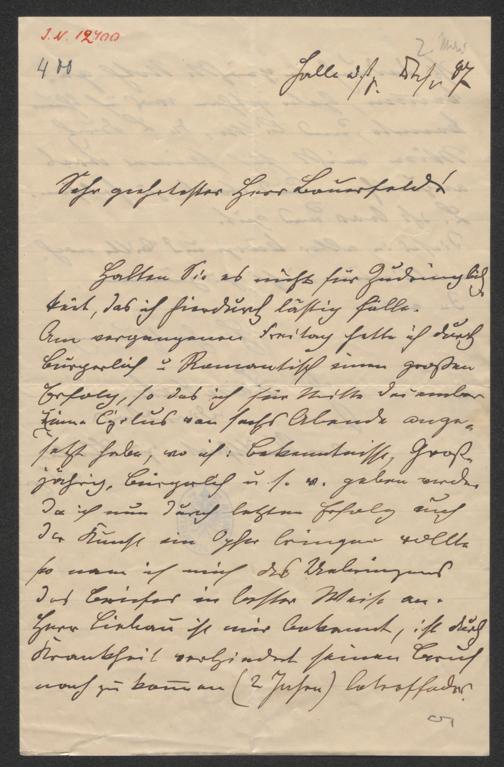 J.N. 12700
400
Halle a/S. 87
Sehr geehrtester Herr Bauernfeld!
Halten Sie es nicht für Zudringlich
keit, das ich hierdurch lästig falle.
Am vergangenen Freitag hatte ich durch
Bürgerlich u Romantisch einen großen
Erfolg, so das ich für Mitte Dezember
einen Cyclus von sechs Abende ange-
setzt habe, wo ich: Bekenntnisse, Groß-
jährig, Bürgerlich u. s. w. geben werde
Da ich nun durch letzten Erfolg auch
der Kunst ein Opfer bringen wollte
so nam ich mich des Ueberbringers
des Briefes in bester Weise an.
Herr Liebau ist mir bekannt, ist durch
Krankheit verhindert seinen Beruf
nach zu kommen (2 Jahre)